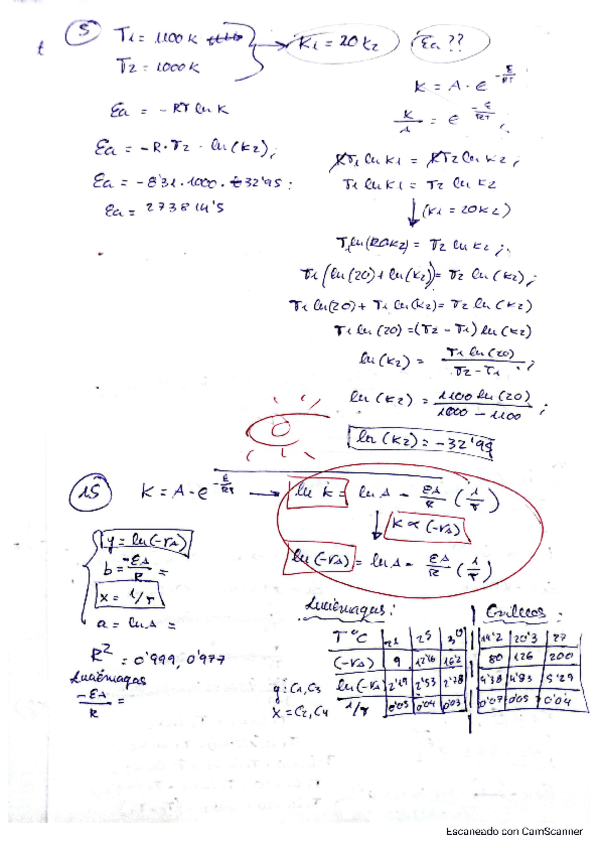 5 T1 = 1100 K
T2 = 1000 K
K1 = 20 K2
Ea ??
K = A · e^(-E/RT)
Ea = -RT ln K
K/A = e^(-E/RT) ;
Ea = -R · T2 · ln(K2) ;
RT1 ln K1 = RT2 ln K2 ;
Ea = -8'31 · 1000 · 32'95 :
T1 ln K1 = T2 ln K2
Ea = 273814'5
(K1 = 20K2)
T1 ln(20K2) = T2 ln K2 ;
T1 (ln(20) + ln(K2)) = T2 ln(K2) ;
T1 ln(20) + T1 ln(K2) = T2 ln(K2)
T1 ln(20) = (T2 - T1) ln(K2)
ln(K2) = T1 ln(20) / T2 - T1 ;
ln(K2) = 1100 ln(20) / 1000 - 1100 ;
ln(K2) = -32'95
15 K = A · e^(-E/RT) → ln K = ln A - EA/R (1/T)
K ∝ (-rA)
y = ln(-rA)
ln(-rA) = ln A - EA/R (1/T)
b = -EA/R =
x = 1/T
a = ln A =
R² = 0'999, 0'977
Luciérnagas
-EA/R =
Luciérnagas :
T ºC 21 25 30
(-rA) 9 12'16 16'2
y: C1, C3 ln(-rA) 2'19 2'53 2'78
x = C2, C4 1/T 0'05 0'04 0'03
Grillos :
14'2 20'3 27
80 126 200
4'38 4'83 5'29
0'07 0'05 0'04
Escaneado con CamScanner